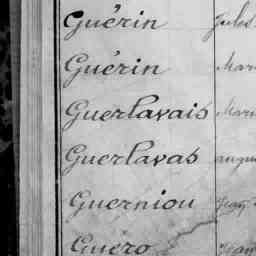 Guérin Jules
Guérin Mari
Guerlavais Mari
Guerlavas augu
Guerniou Jean
Guéro Jean